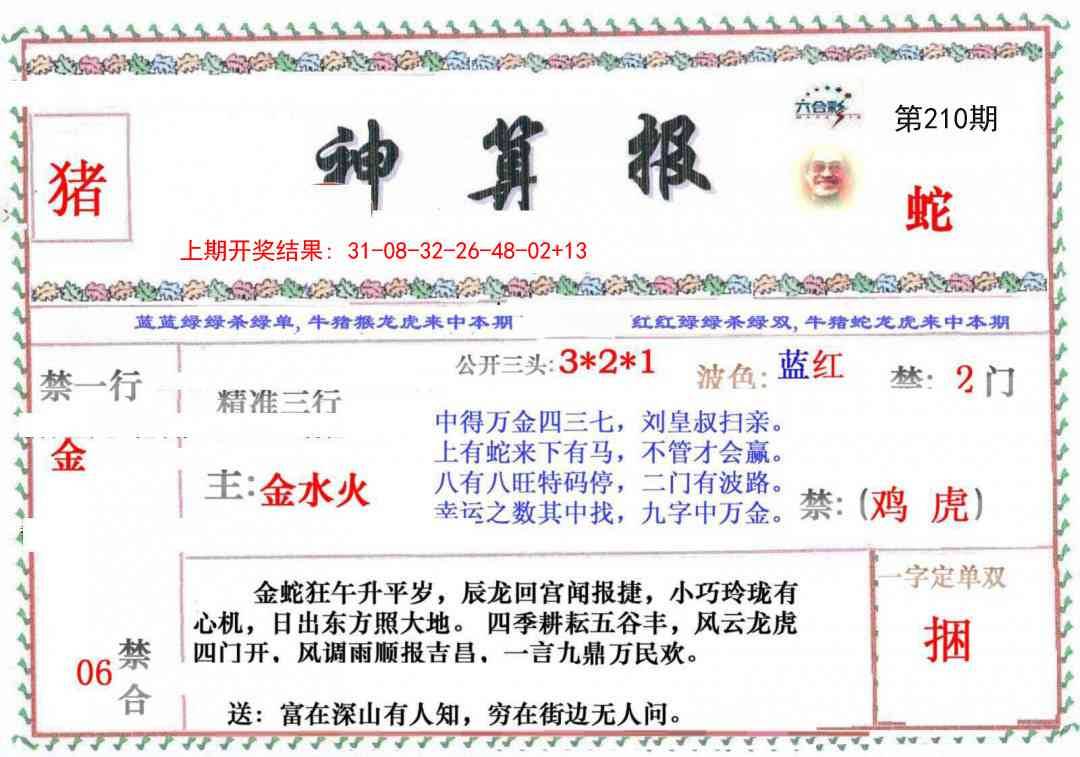 六合彩
第210期
猪
神算报
蛇
上期开奖结果: 31-08-32-26-48-02+13
蓝蓝绿绿杀绿单,牛猪猴龙虎来中本期
红红绿绿杀绿双,牛猪蛇龙虎来中本期
公开三头:3*2*1
波色:蓝红
禁:2门
禁一行
金
精准三行
主:金水火
中得万金四三七，刘皇叔扫亲。
上有蛇来下有马，不管才会赢。
八有八旺特码停，二门有波路。
幸运之数其中找，九字中万金。
禁:(鸡 虎)
金蛇狂午升平岁，辰龙回宫闻报捷，小巧玲珑有
心机，日出东方照大地。 四季耕耘五谷丰，风云龙虎
四门开，风调雨顺报吉昌，一言九鼎万民欢。
送：富在深山有人知，穷在街边无人问。
06
禁合
一字定单双
捆